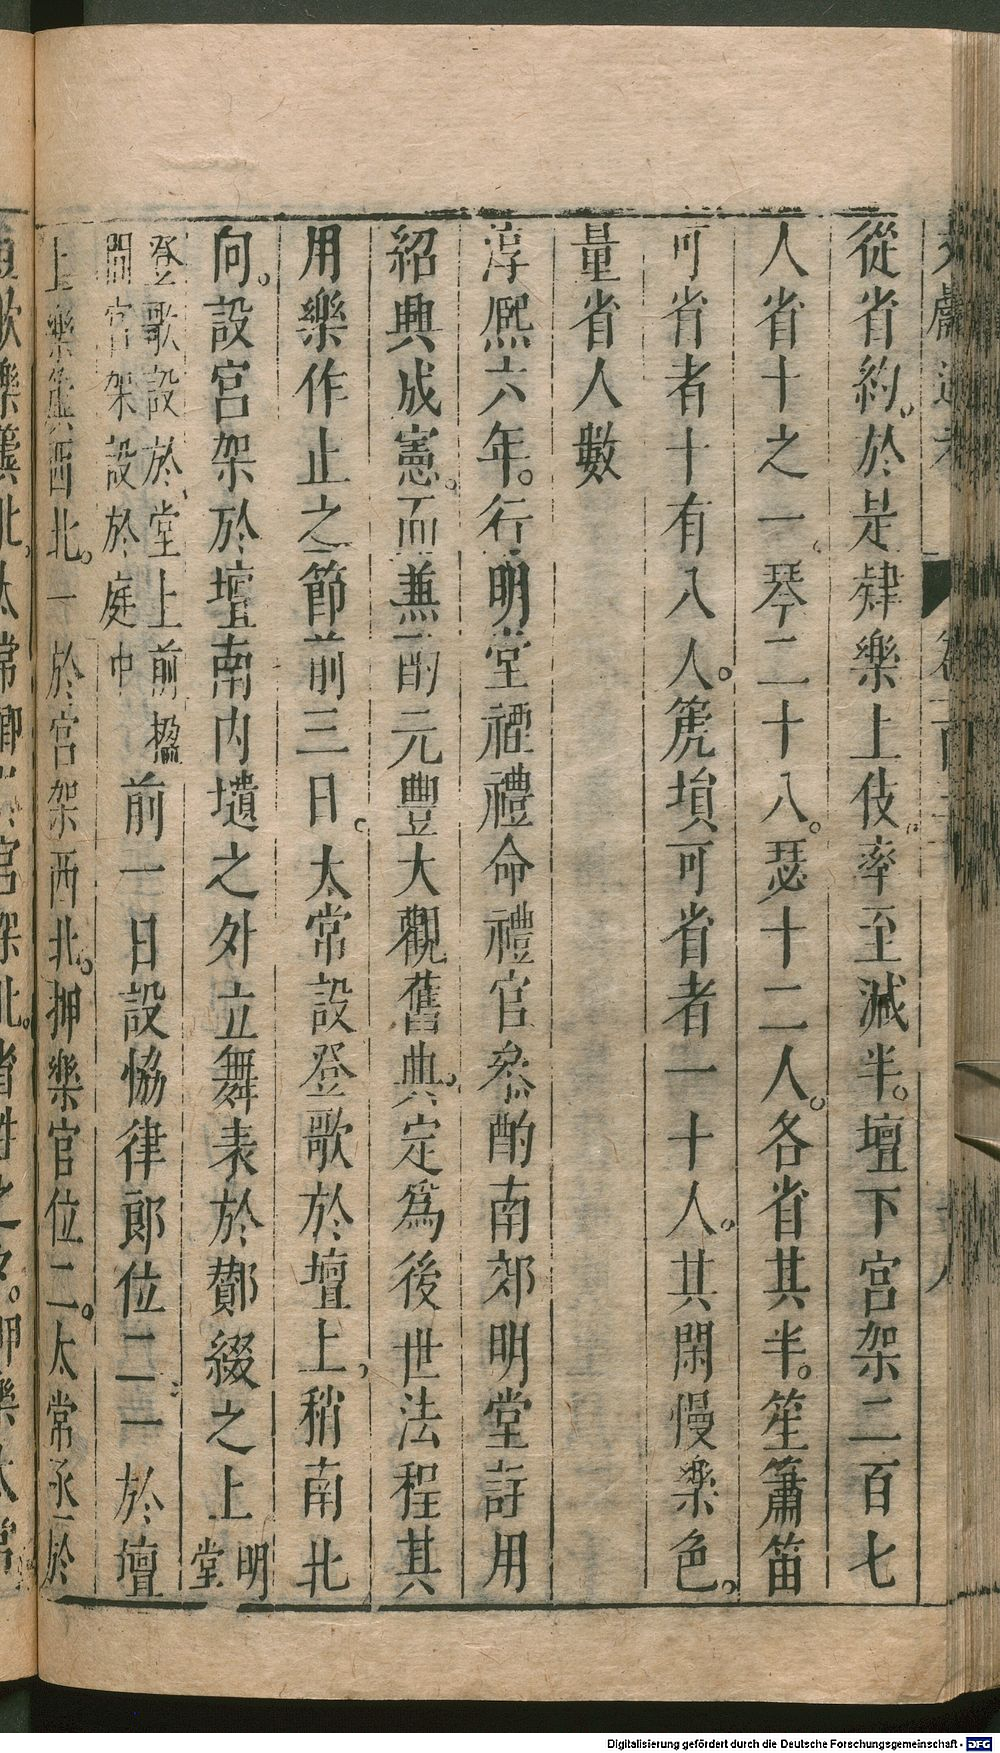 從省約。於是肄樂上伎。率至減半。壇下宮架二百七
人省十之一。琴二十八。瑟十二人。各省其半。笙簫笛
可省者十有八人。篪塤可省者一十人。其閑慢樂色。
量省人數
淳熈六年。行明堂禋禮命禮官叅酌南郊明堂詳用
紹興成憲。而兼酌元豐大觀舊典。定為後世法程其
用樂作止之節前三日。太常設登歌於壇上，稍南北
向。設宮架於壇南內壝之外立舞表於酇綴之上明堂
登歌設於堂上前楹
間宮架設於庭中
前一日設恊律郎位二一於壇
上樂簴西北。一於宮架西北。押樂官位二。太常丞於
登歌樂簴北。太常卿於宮架北。省牲之夕。押樂太常
Digitalisierung gefördert durch die Deutsche Forschungsgemeinschaft - DFG